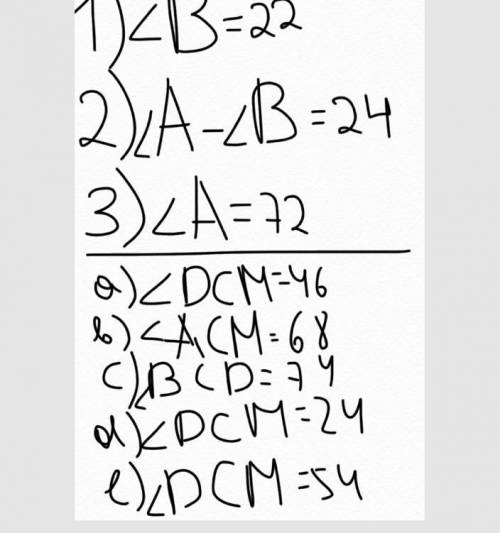 1) ∠B=22
2) ∠A-∠B=24
3) ∠A=72
a) ∠DCM=46
b) ∠ACM=68
c) ∠BCD=74
d) ∠DCM=24
e) ∠DCM=54